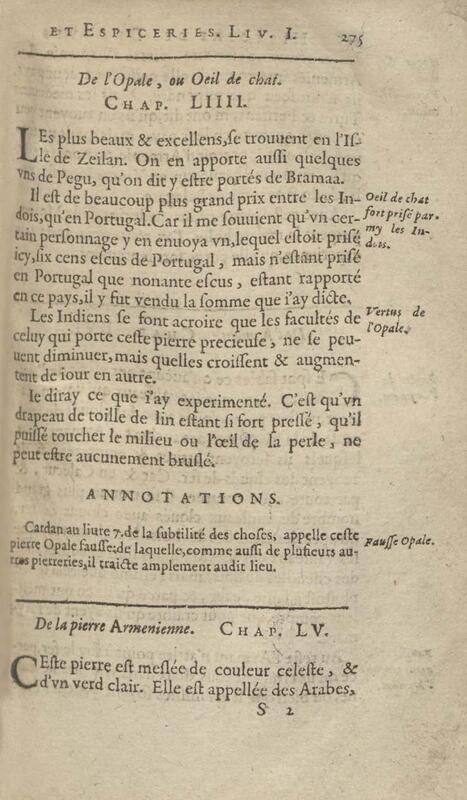 ET ESPICERIES. LIV. I. 275
De l'Opale, ou Oeil de chat.
CHAP. LIIII.
LEs plus beaux & excellens, se trouuent en l'Is-
le de Zeilan. On en apporte aussi quelques
vns de Pegu, qu'on dit y estre portés de Bramaa.
Il est de beaucoup plus grand prix entre les In-
dois, qu'en Portugal. Car il me souuient qu'vn cer-
tain personnage y en enuoya vn, lequel estoit prisé
icy, six cens escus de Portugal, mais n'estant prisé
en Portugal que nonante escus, estant rapporté
en ce pays, il y fut vendu la somme que i'ay dicte.
Oeil de chat
fort prisé par-
my les In-
dois.
Les Indiens se font acroire que les facultés de
celuy qui porte ceste pierre precieuse, ne se peu-
uent diminuer, mais quelles croissent & augmen-
tent de iour en autre.
Vertus de
l'Opale.
Ie diray ce que i'ay experimenté. C'est qu'vn
drapeau de toille de lin estant si fort pressé, qu'il
puissé toucher le milieu ou l'œil de sa perle, ne
peut estre aucunement bruslé.
ANNOTATIONS.
Cardan au liure 7. de la subtilité des choses, appelle ceste
pierre Opale fausse: de laquelle, comme aussi de plusieurs au-
tres pierreries, il traicte amplement audit lieu.
Fausse Opale.
De la pierre Armenienne. CHAP. LV.
CEste pierre est meslée de couleur celeste, &
d'vn verd clair. Elle est appellée des Arabes,
S 2